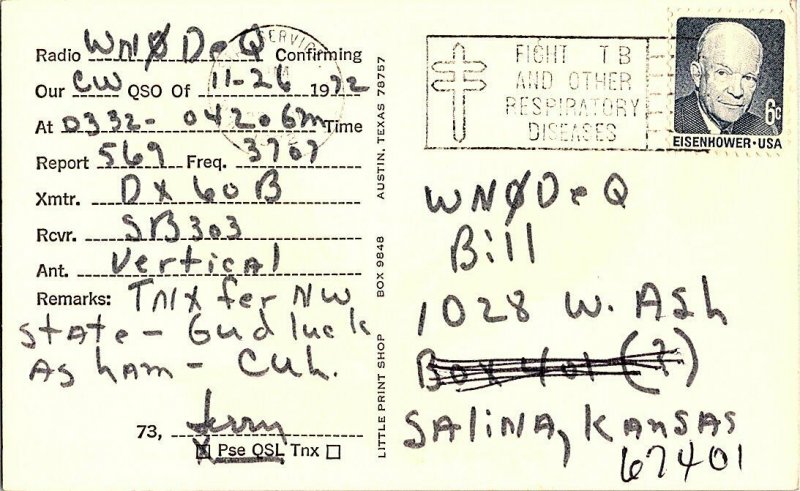 Radio WNØDeQ Confirming
Our CW QSO Of 11-26 1972
At 0332-0420 Gmt Time
Report 569 Freq. 3707
Xmtr. DX 60B
Rcvr. SB303
Ant. Vertical
Remarks: TNX fer NW
State - Gud luck
As ham - CUL.
73, Jerry
☒ Pse QSL Tnx ☐
LITTLE PRINT SHOP BOX 9848 AUSTIN, TEXAS 78757
FIGHT TB
AND OTHER
RESPIRATORY
DISEASES
6c
EISENHOWER·USA
WNØDeQ
Bill
1028 W. Ash
Box 401 (?)
Salina, Kansas
67401